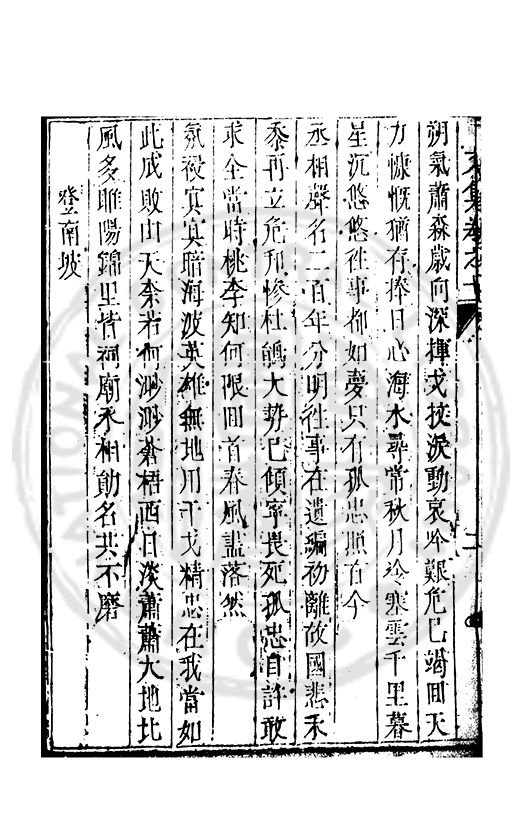 朔氣蕭森歲向深揮戈挍淚動哀吟艱危已竭回天
力慷慨猶存捧日心海水尋常秋月冷寒雲千里暮
星沉悠悠往事都如夢只有孤忠照古今
丞相聲名二百年分明往事在遺編初離故國悲禾
黍再立危邦慘杜鵑大勢已傾寧畏死孤忠自許敢
求全當時桃李知何限回首春風盡落然
氛祲冥冥暗海波英雄無地用干戈精忠在我當如
此成敗由天奈若何渺渺蒼梧西日淡蕭蕭大地北
風多睢陽錦里皆祠廟丞相勛名共不磨
登南坡
文集卷之十
二